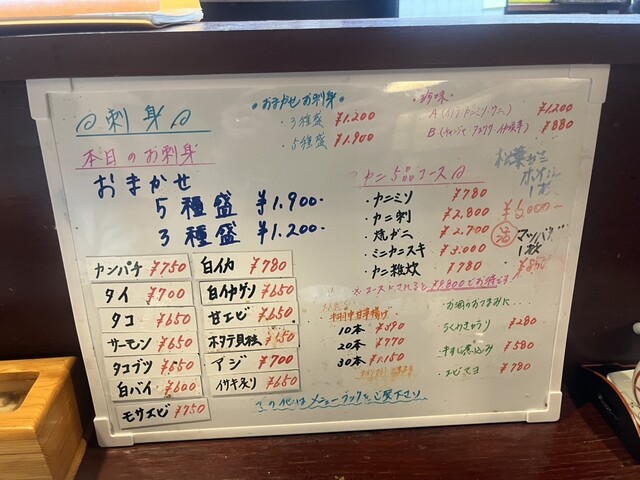 刺身
本日のお刺身
おまかせ
5種盛 ¥1.900-
3種盛 ¥1.200-
カンパチ ¥750
タイ ¥700
タコ ¥650
サーモン ¥650
タコブツ ¥550
白バイ ¥600
モサエビ ¥750
白イカ ¥780
白イカゲソ ¥650
甘エビ ¥650
ホタテ貝柱
アジ ¥700
イサキ炙り ¥650
おまかせお刺身
3種盛 ¥1.200
5種盛 ¥1.900
珍味
A ¥1.200
B ¥880
カニ5品コース
・カニミソ ¥780
・カニ刺 ¥2.800
・焼ガニ ¥2.700
・ミニカニスキ ¥3.000
・カニ雑炊 ¥780
松葉ガニ
ボイル
活
マツバガニ
1枚
10本 ¥390
20本 ¥770
30本 ¥1.150
お酒のおつまみに…
¥280
牛すじ煮込み ¥580
エビマヨ ¥780
この他はメニューブックをご覧下さい